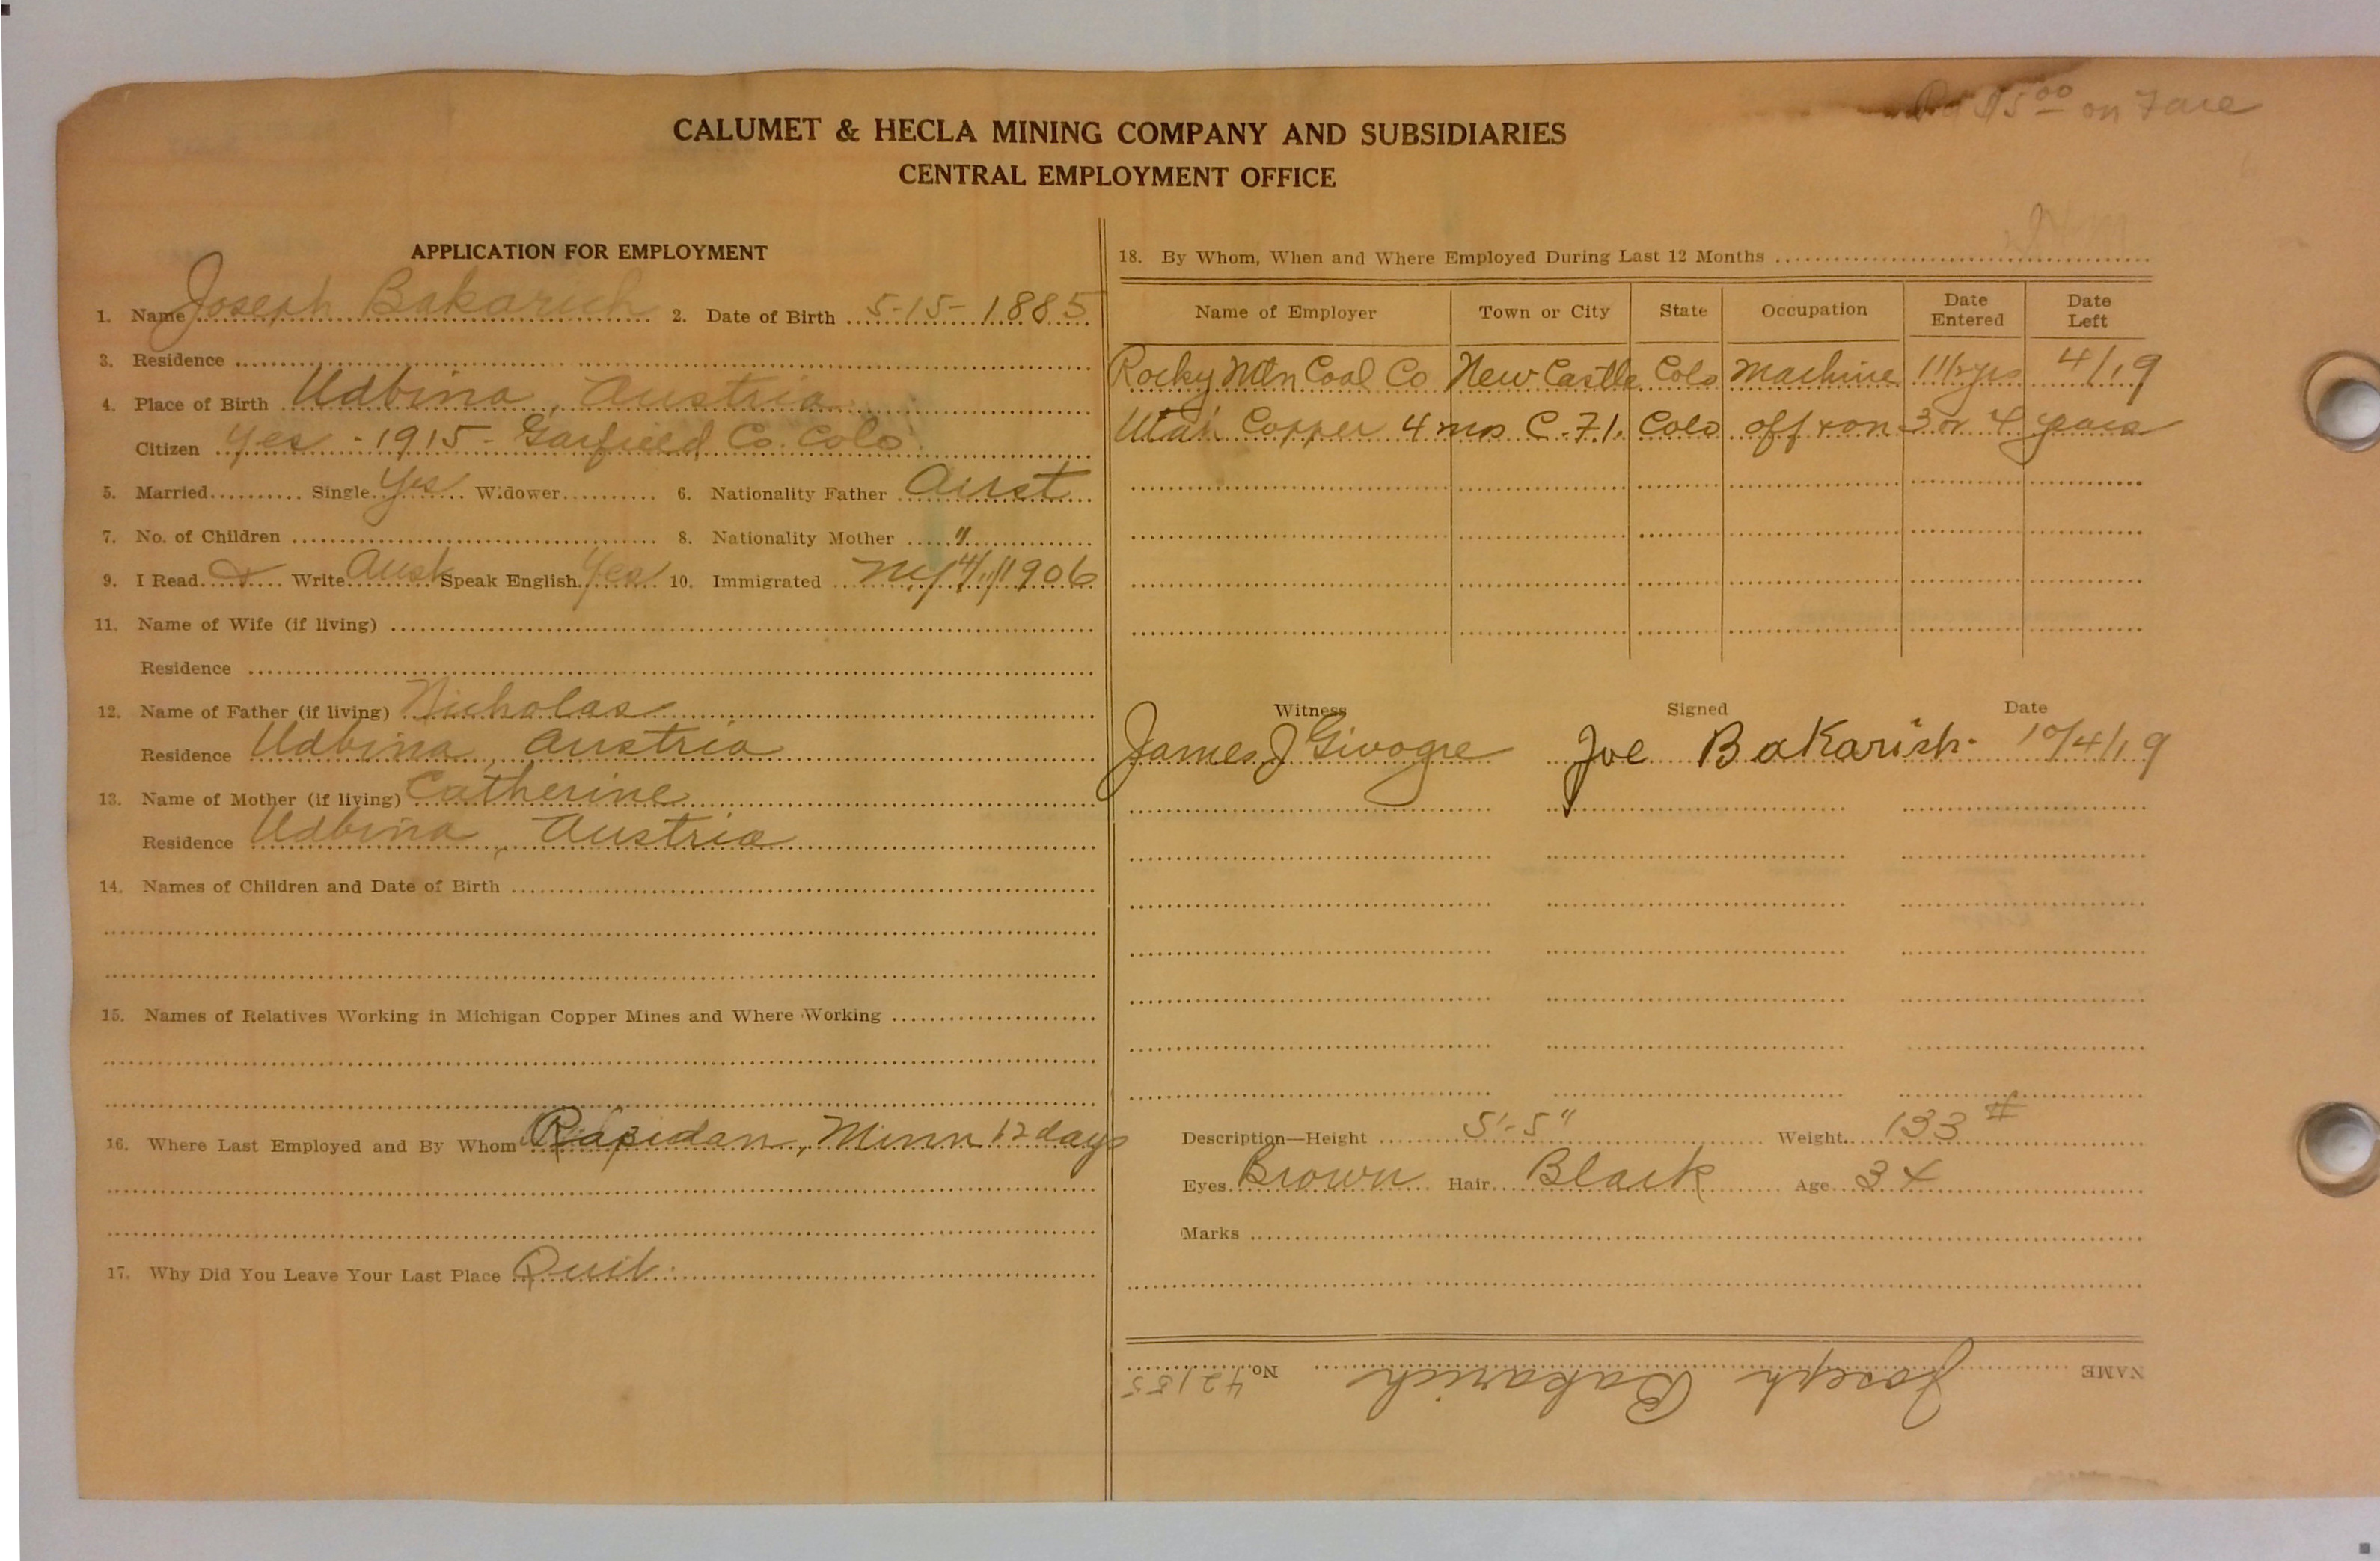 Pd $5.00 on Fare
CALUMET & HECLA MINING COMPANY AND SUBSIDIARIES
CENTRAL EMPLOYMENT OFFICE
APPLICATION FOR EMPLOYMENT
1. Name Joseph Bakarich 2. Date of Birth 5-15-1885
3. Residence
4. Place of Birth Udbina, Austria
Citizen Yes - 1915 - Garfield Co. Colo.
5. Married Single Yes Widower 6. Nationality Father Aust
7. No. of Children 8. Nationality Mother "
9. I Read & Write Aust Speak English Yes 10. Immigrated NY 4/1/1906
11. Name of Wife (if living)
Residence
12. Name of Father (if living) Nicholas
Residence Udbina, Austria
13. Name of Mother (if living) Catherine
Residence Udbina, Austria
14. Names of Children and Date of Birth
15. Names of Relatives Working in Michigan Copper Mines and Where Working
16. Where Last Employed and By Whom Rapidan, Minn 12 days
17. Why Did You Leave Your Last Place Quit.
18. By Whom, When and Where Employed During Last 12 Months
Name of Employer Town or City State Occupation Date Entered Date Left
Rocky Mtn Coal Co New Castle Colo Machine 1 1/2 yrs 4/19
Utah Copper 4 mos C.71. Colo off & on 3 or 4 years
Witness Signed Date
James J Givogre Joe Bakarish. 10/4/19
Description—Height 5'-5" Weight 133 #
Eyes Brown Hair Black Age 34
Marks
NAME Joseph Bakarich No. 42155